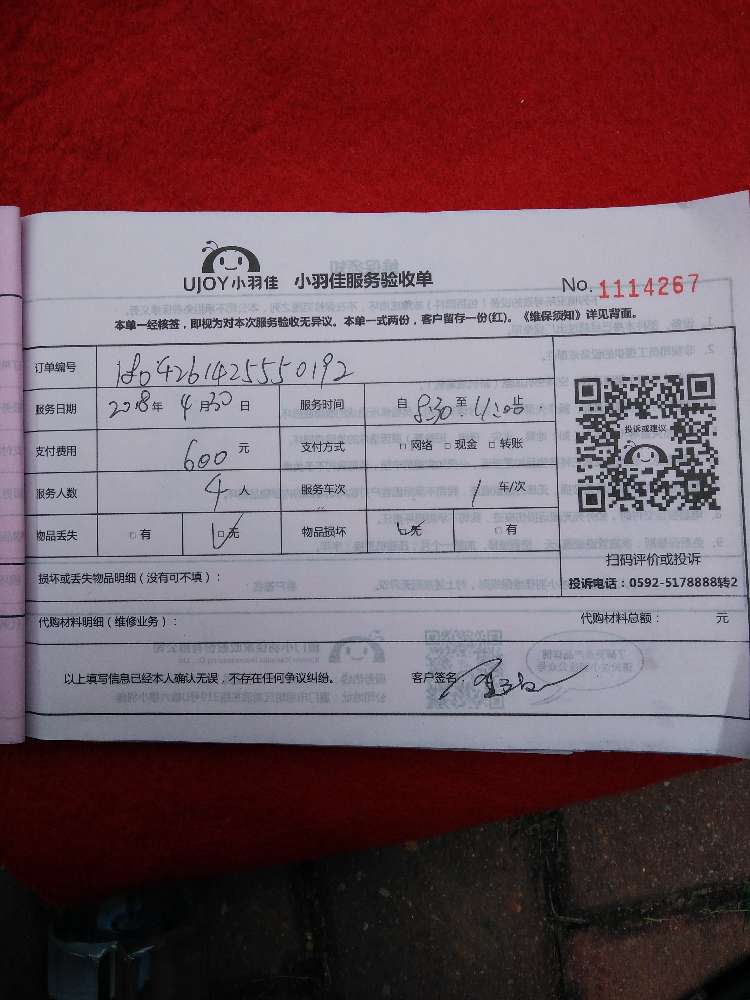 UJOY小羽佳 小羽佳服务验收单 No. 1114267
本单一经核签，即视为对本次服务验收无异议。本单一式两份，客户留存一份(红)。《维保须知》详见背面。
订单编号 1804261425550192
服务日期 2018年 4月30日 服务时间 自 8:30 至 11:20止
支付费用 600元 支付方式 □网络 □现金 □转账
服务人数 4人 服务车次 1车/次
物品丢失 □有 ☑无 物品损坏 ☑无 □有
投诉或建议
扫码评价或投诉
投诉电话：0592-5178888转2
损坏或丢失物品明细（没有可不填）：
代购材料明细（维修业务）： 代购材料总额： 元
以上填写信息已经本人确认无误，不存在任何争议纠纷。 客户签名：